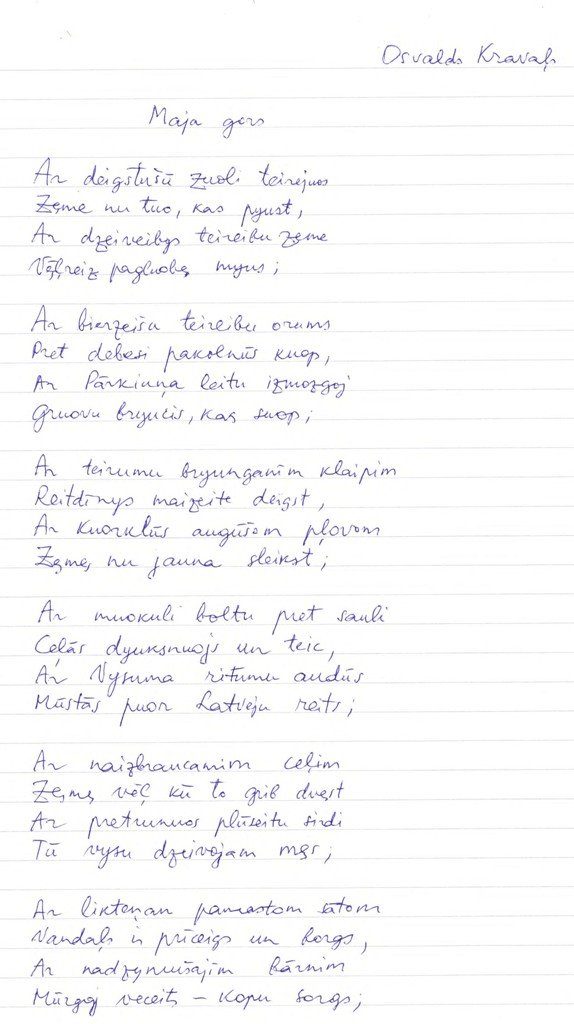 Osvalds Kravaļs
Maja gors
Ar deigstūšū zuoli teirejuos
Zeme nu tuo, kas pyust,
Ar dzeiveibys teireibu zeme
Vēļreiz pagluobe myus;
Ar bierzeišu teireibu orums
Pret debesi pakolnūs kuop,
Ar Pārkiuņa leitu izmozgoj
Gruovu bryucis, kas suop;
Ar teirumu bryunganim klaipim
Reitdīnys maizeite deigst,
Ar kuorklūs augūšom pļovom
Zemes nu jauna sleikst;
Ar muokuli boltu pret sauli
Ceļās dyuksnuojs un teic,
Ar Vysuma ritumu audūs
Mūstās puor Latveju reits;
Ar naizbraucamim celim
Zeme vēļ kū to grib dvest
Ar pretrunuos plūseitu sirdi
Tū vysu dzeivojam mes;
Ar likteņam pamastom sātom
Vandaļs ir prīceigs un borgs,
Ar nadzymušajim bārnim
Mūrgoj veceits – kopu sorgs;